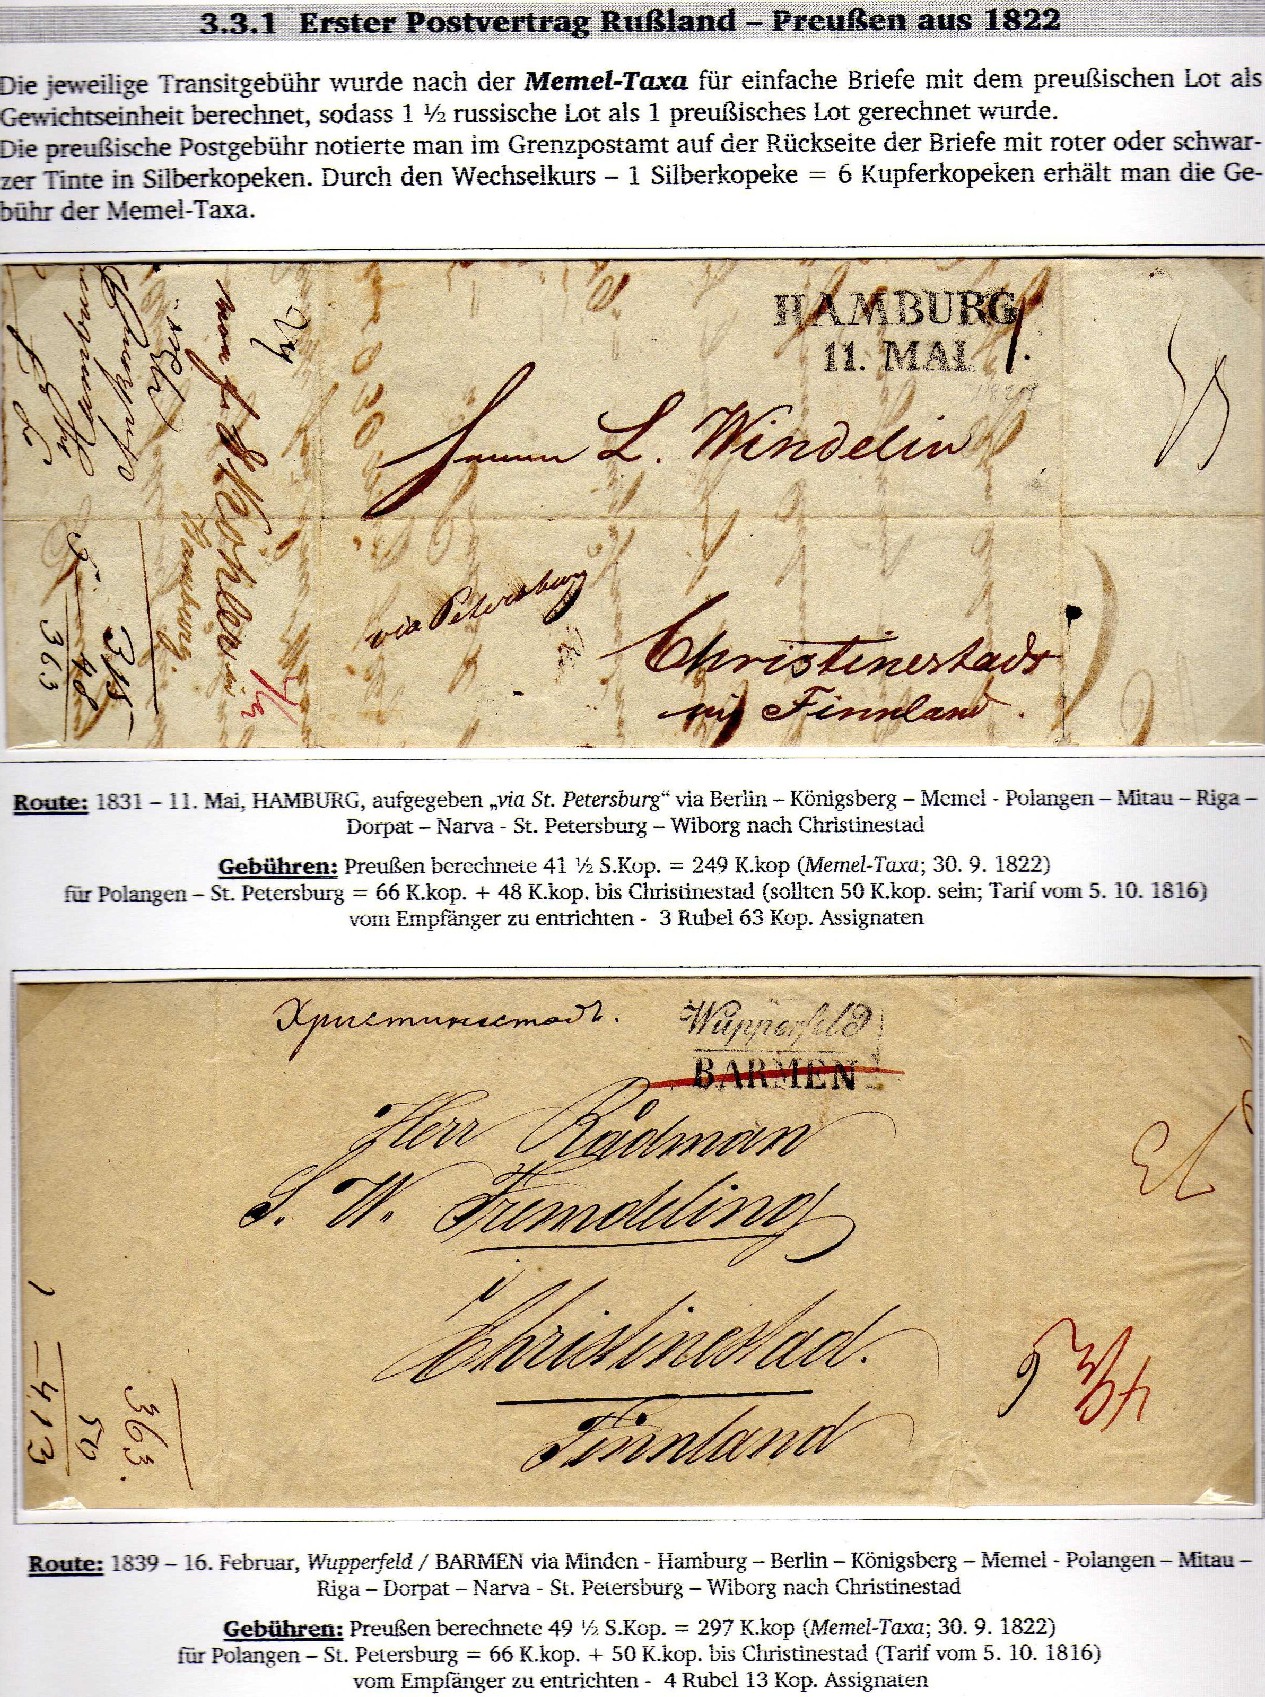 3.3.1 Erster Postvertrag Rußland – Preußen aus 1822
Die jeweilige Transitgebühr wurde nach der Memel-Taxa für einfache Briefe mit dem preußischen Lot als
Gewichtseinheit berechnet, sodass 1 ½ russische Lot als 1 preußisches Lot gerechnet wurde.
Die preußische Postgebühr notierte man im Grenzpostamt auf der Rückseite der Briefe mit roter oder schwar-
zer Tinte in Silberkopeken. Durch den Wechselkurs – 1 Silberkopeke = 6 Kupferkopeken erhält man die Ge-
bühr der Memel-Taxa.
HAMBURG
11. MAI
L. Windelin
via Petersburg
Christinestadt
in Finnland.
Hamburg.
315
48
363
Route: 1831 – 11. Mai, HAMBURG, aufgegeben „via St. Petersburg“ via Berlin – Königsberg – Memel - Polangen – Mitau – Riga –
Dorpat – Narva - St. Petersburg – Wiborg nach Christinestad
Gebühren: Preußen berechnete 41 ½ S.Kop. = 249 K.kop (Memel-Taxa; 30. 9. 1822)
für Polangen – St. Petersburg = 66 K.kop. + 48 K.kop. bis Christinestad (sollten 50 K.kop. sein; Tarif vom 5. 10. 1816)
vom Empfänger zu entrichten - 3 Rubel 63 Kop. Assignaten
Христинестадъ.
Wupperfeld
BARMEN
Herr Rådman
S. W. Fremdeling
Christinestad.
Finnland
363.
50
413
49 ½
6
Route: 1839 – 16. Februar, Wupperfeld / BARMEN via Minden - Hamburg – Berlin – Königsberg – Memel - Polangen – Mitau –
Riga – Dorpat – Narva - St. Petersburg – Wiborg nach Christinestad
Gebühren: Preußen berechnete 49 ½ S.Kop. = 297 K.kop (Memel-Taxa; 30. 9. 1822)
für Polangen – St. Petersburg = 66 K.kop. + 50 K.kop. bis Christinestad (Tarif vom 5. 10. 1816)
vom Empfänger zu entrichten - 4 Rubel 13 Kop. Assignaten